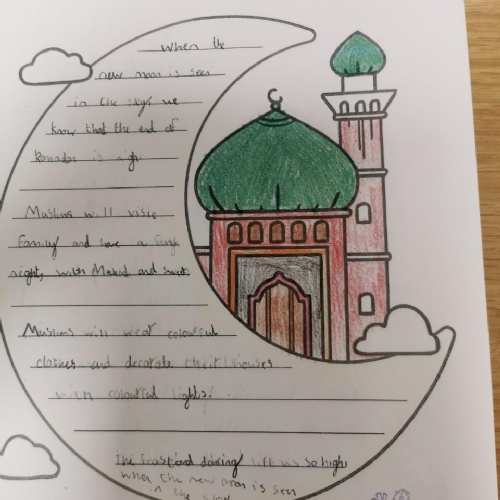 When the
new moon is seen
in the sky we
know that the end of
Ramadan is nigh
Muslims will visit
family and have a
night, with Mehndi and sweet
Muslims will wear colourful
clothes and decorate their houses
with colourful lights!
The feast and dancing lift us so high
when the new moon is seen
in the sky